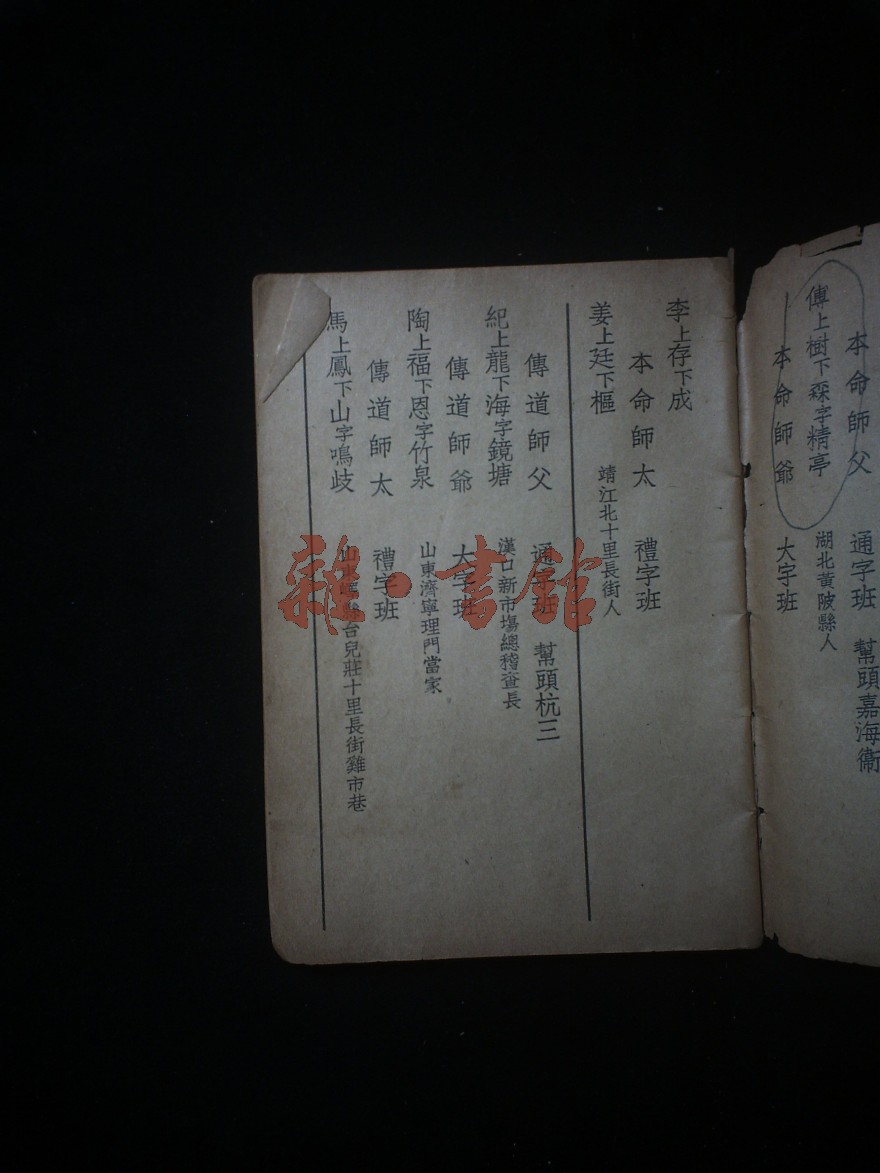 本命師父　通字班　幫頭嘉海衛
傅上樹下森字精亭　湖北黃陂縣人
本命師爺　大字班
李上存下成
本命師太　禮字班
姜上廷下樞　靖江北十里長街人
傳道師父　通字班　幫頭杭三
紀上龍下海字鏡塘　漢口新市場總稽查長
傳道師爺　大字班
陶上福下恩字竹泉　山東濟寧理門當家
傳道師太　禮字班
馬上鳳下山字鳴歧　山東　台兒莊十里長街雞市巷
雜·書館